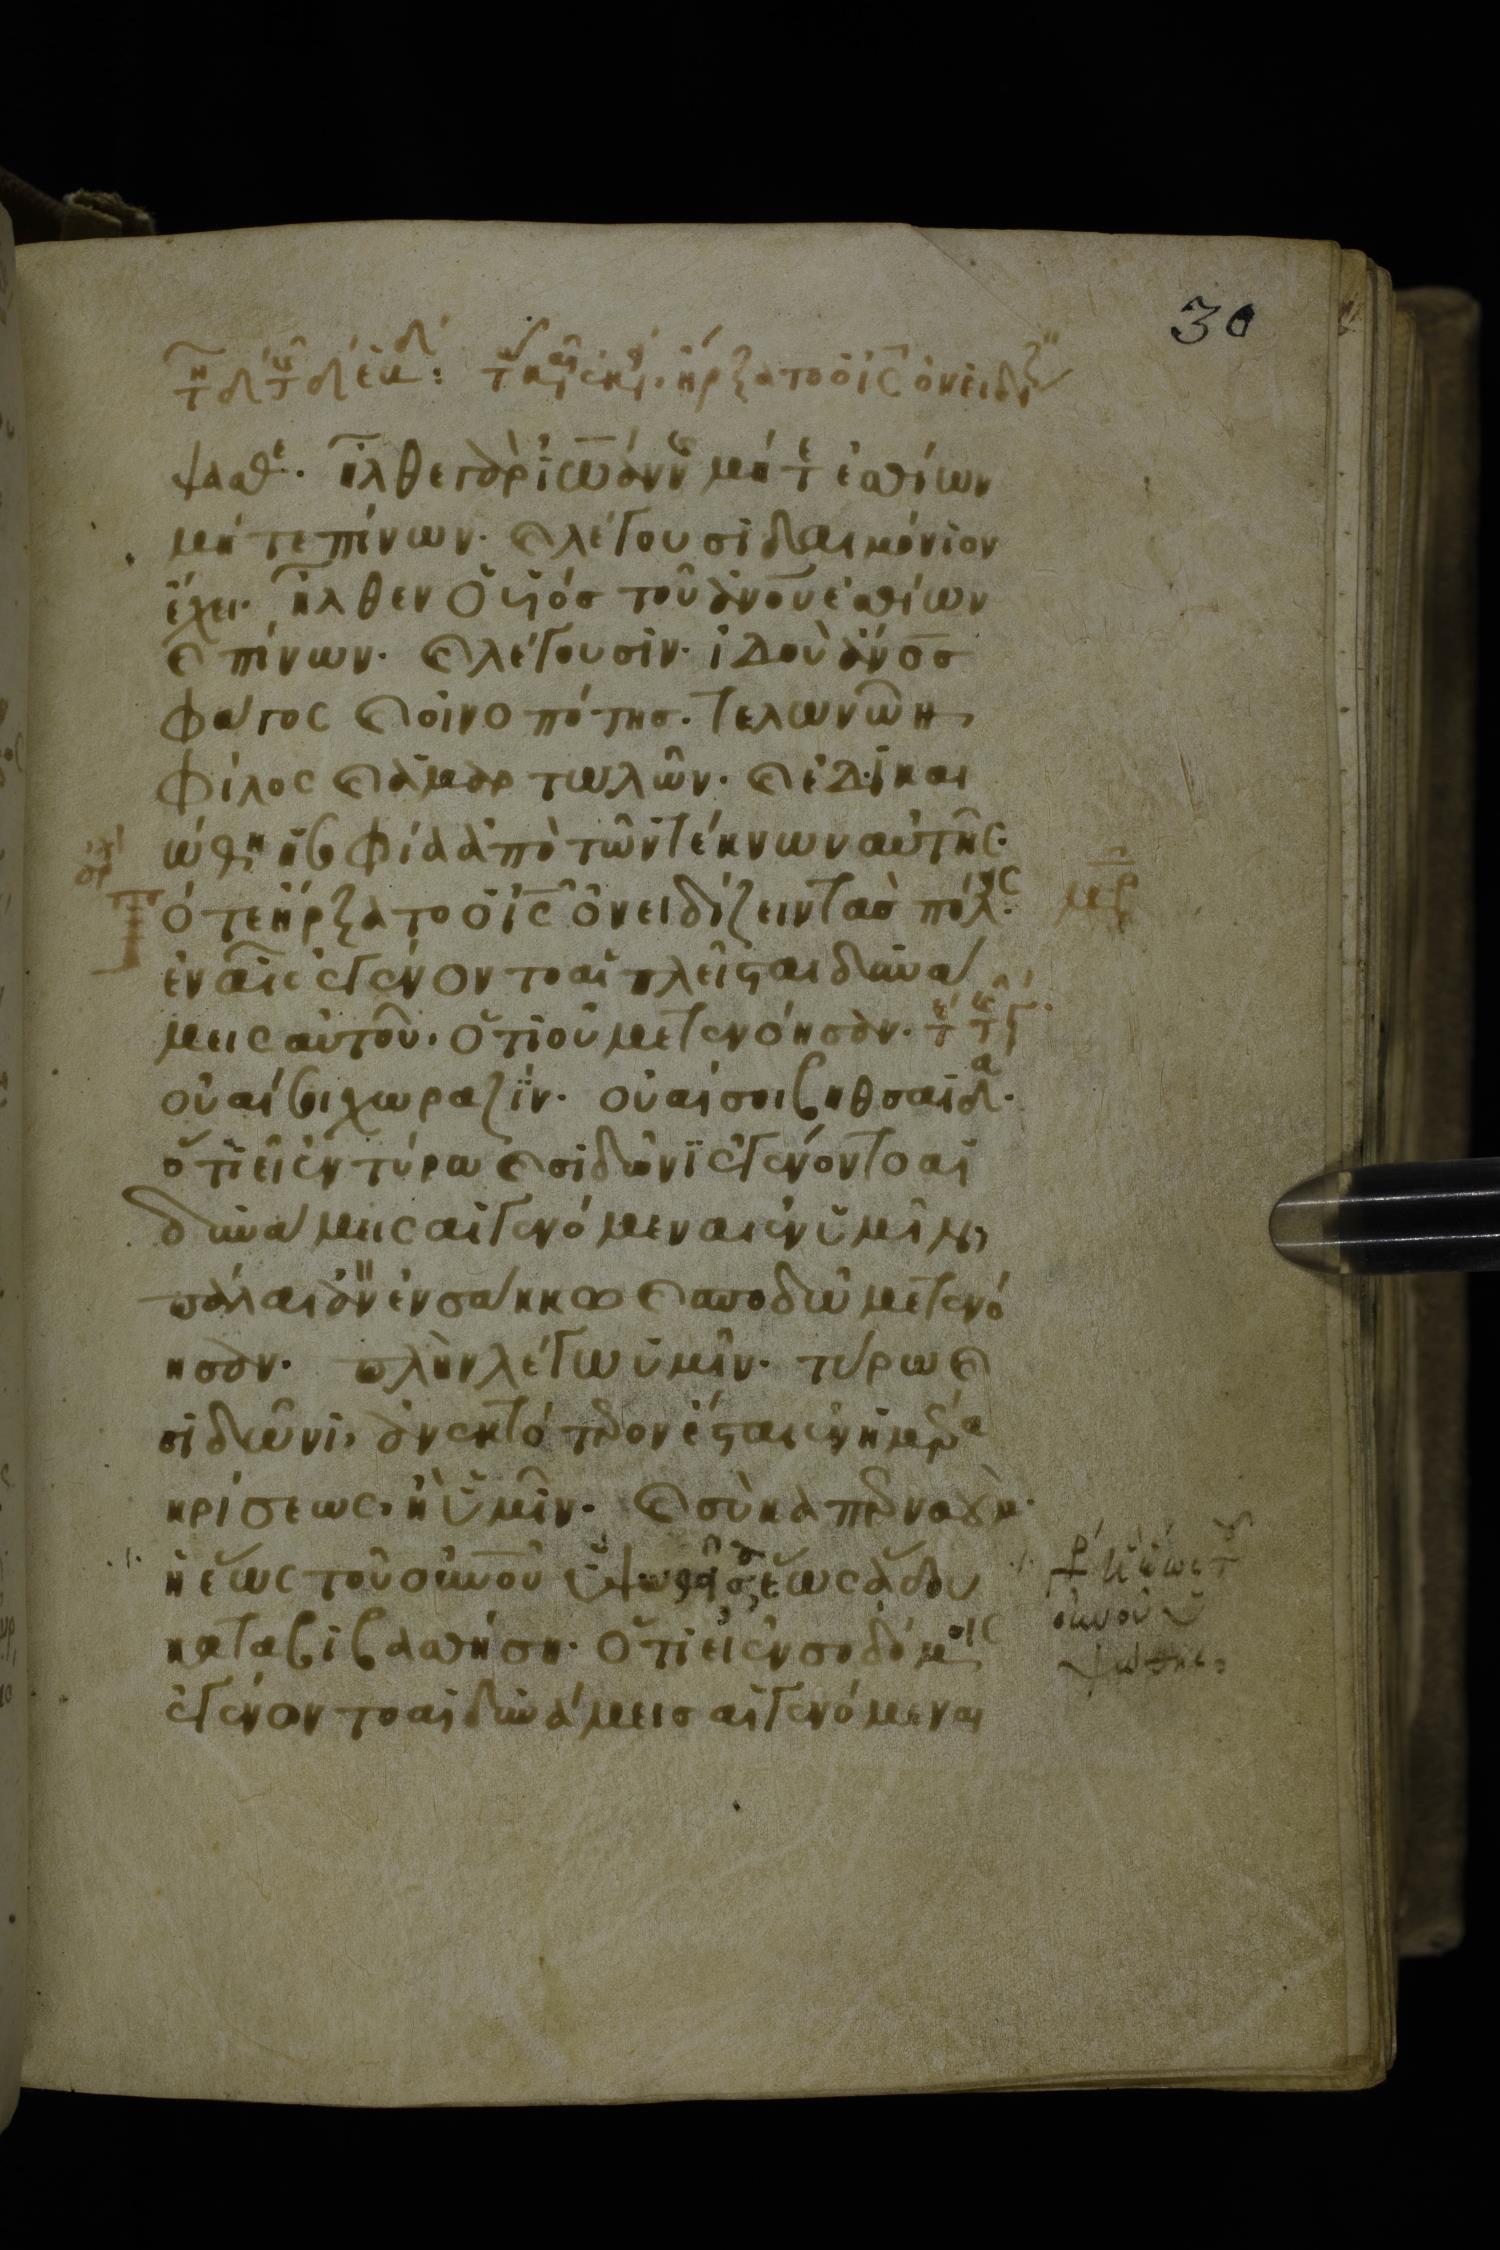 30
τῇ δ τῆς δ ἑβδ: τῷ καιρῷ ἐκείνῳ. ἤρξατο ὁ ἰς ὀνειδίζ
ψασθε. ἦλθε γὰρ ἰωάννης μήτε ἐσθίων
μήτε πίνων. καὶ λέγουσι δαιμόνιον
ἔχει. ἦλθεν ὁ υἱὸσ τοῦ ἀνου ἐσθίων
καὶ πίνων. καὶ λέγουσιν. ἰδοὺ ἄνοσ
φάγος καὶ οἰνοπότησ. τελωνῶν
φίλος καὶ ἁμαρτωλῶν. καὶ ἐδικαι
ώθη ἡ σοφία ἀπὸ τῶν τέκνων αὐτῆς.
Τότε ἤρξατο ὁ ἰς ὀνειδίζειν τὰσ πόλεις.
ἐν αἷς ἐγένοντο αἱ πλεῖσται δυνά
μεις αὐτοῦ. ὅτι οὐ μετενόησαν.
οὐαί σοι χωραζΐν. οὐαί σοι βηθσαϊδά.
ὅτι εἰ ἐν τύρω καὶ σιδῶνϊ ἐγένοντο αἱ
δυνάμεις αἱ γενόμεναι ἐν ὑμῖν,
πάλαι ἂν ἐν σάκκω καὶ σποδῶ μετενό
ησαν. πλὴν λέγω ὑμῖν. τύρω καὶ
σιδῶνι, ἀνεκτότερον ἔσται ἐν ἡμέρα
κρίσεως, ἢ ὑμῖν. καὶ σὺ καπερναοὺμ.
ἡ ἕως τοῦ οὐνοῦ ὑψωθεῖσα ἕως ἅδου
καταβιβασθήση. ὅτι εἰ ἐν σοδόμοις
ἐγένοντο αἱ δυνάμεισ αἱ γενόμεναι
μὴ ἕως τοῦ
οὐνοῦ ὑ
ψωθής.